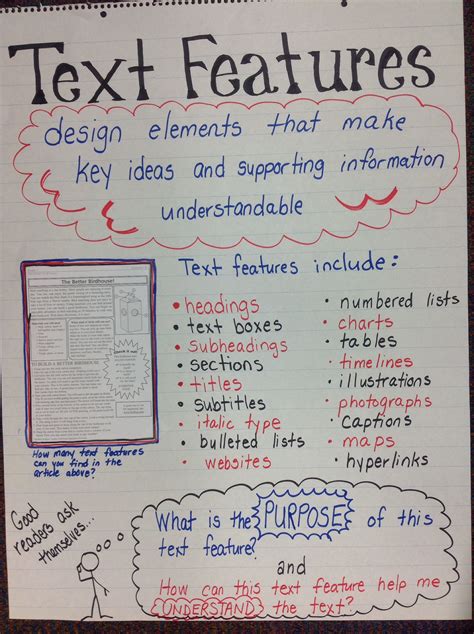 Text Features
design elements that make
key ideas and supporting information
understandable
The Better Birdhouse!
Text features include:
• headings
• text boxes
• Subheadings
• sections
• titles
• subtitles
• italic type
• bulleted lists
• websites
• numbered lists
• charts
• tables
• timelines
• illustrations
• photographs
• Captions
• maps
• hyperlinks
How many text features
can you find in the
article above?
Good
readers ask
themselves...
What is the PURPOSE of this
text feature?
and
How can this text feature help me
UNDERSTAND the text?